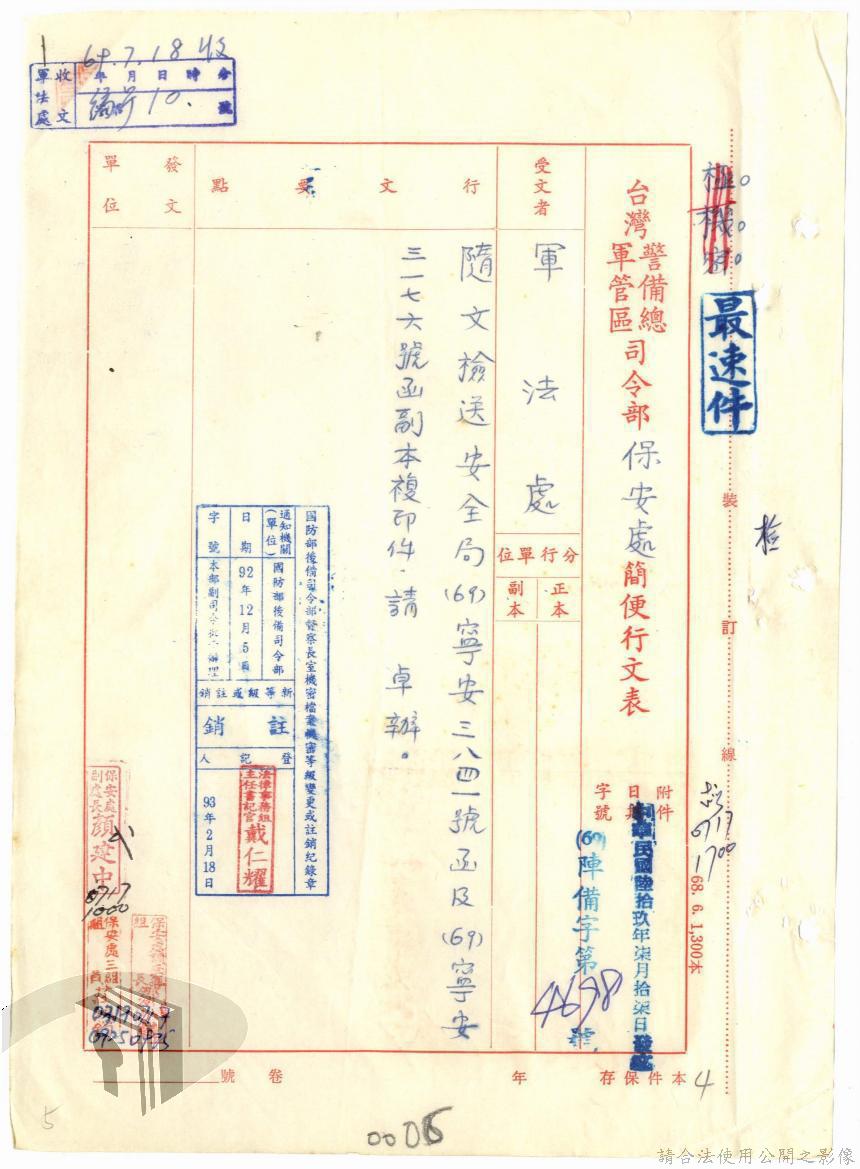 極機密
最速件
檢
裝 訂 線
0717
1700
68. 6. 1,300本
台灣警備總軍管區司令部保安處簡便行文表
附件
日期 中華民國陸拾玖年柒月拾柒日發文
字號 (69)陣備字第4698號
受文者 軍法處
分行單位
正本
副本
行文要點
隨文檢送安全局(69)寧安三八四一號函及(69)寧安
三一七六號函副本複印件。請 卓辦。
發文單位
國防部後備司令部督察長室機密檔案機密等級變更或註銷紀錄章
通知機關(單位) 國防部後備司令部
日期 92年12月5日
字號
新等級或註銷 註銷
登記人 法律事務組主任書記官 戴仁耀
93年2月18日
保安處副處長 顏建中
0717
1000
保安處三組
本件保存 年 卷 號
4
軍法處 收文
69.7.18收
年 月 日 時 分
編號 10. 號
5
0006
請合法使用公開之影像